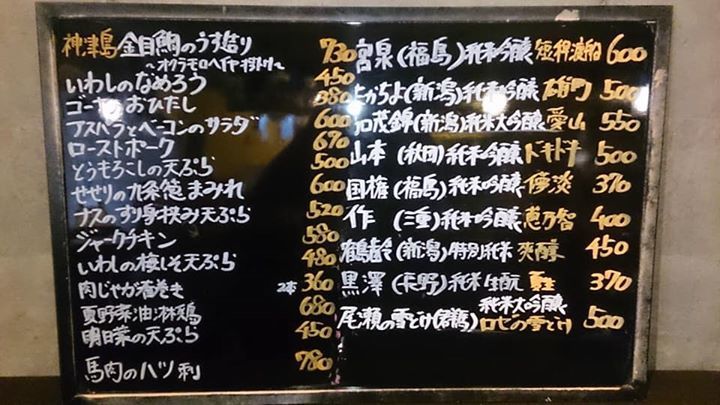 神津島 金目鯛のうす造り 730
〜オクラモロヘイヤ
いわしのなめろう 450
ゴーヤおひたし 380
アスパラとベーコンのサラダ 600
ローストポーク 670
とうもろこしの天ぷら 500
せせりの九条葱まみれ 600
ナスのすり身挟み天ぷら 520
ジャークチキン 580
いわしの梅しそ天ぷら 480
肉じゃが春巻き 2本 360
夏野菜油淋鶏 680
明日葉の天ぷら 450
馬肉のハツ刺 780
冩泉(福島)純米吟醸 短稈渡船 600
たかちよ(新潟)純米吟醸 雄町 500
加茂錦(新潟)純米大吟醸 愛山 550
山本(秋田)純米吟醸 ドキドキ 500
国権(福島)純米吟醸 370
作(三重)純米吟醸 恵乃智 400
鶴齢(新潟)特別純米 爽醇 450
黒澤(長野)純米生酛 370
尾瀬の雪どけ(群馬)純米大吟醸 ロゼの雪どけ 500